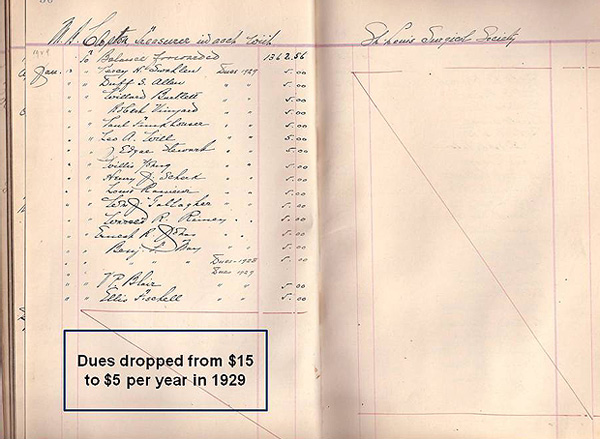 Treasurer in acct with
St. Louis Surgical Society
1929
To Balance Forwarded 1362.56
Jan. " " Dues 1929 5.00
" " Duff S. Allen " " 5.00
" " Willard Bartlett " " 5.00
" " Robert Vinyard " " 5.00
" " Paul Funkhouser " " 5.00
" " Leo A. Will " " 5.00
" " J Edgar Stewart " " 5.00
" " Willis Young " " 5.00
" " Henry J. Scherck " " 5.00
" " Louis " " 5.00
" " Wm J. Gallagher " " 5.00
" " R. " " 5.00
" " Ernest R. " " 5.00
" " Benj. " " 5.00
" " Dues-1928
" " Dues 1929
" " V P. Blair " " 5.00
" " Ellis Fischel " " 5.00
Dues dropped from $15
to $5 per year in 1929